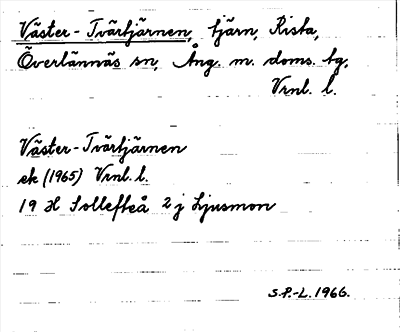 Väster-Tvärtjärnen, tjärn, Rista,
Överlännäs sn, Ång. m. doms. tg,
Vrnl. l.
Väster-Tvärtjärnen
ek (1965) Vrnl. l.
19 H Sollefteå 2 j Ljusmon
S.P.-L. 1966.